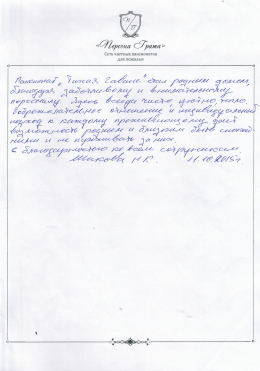 «Перспол Грата»
Сеть частных пансионатов
для пожилых
Пансионат "Тихая Гавань" стал родным домом,
благодаря заботливому и внимательному
персоналу. Здесь всегда чисто, уютно, тепло.
Доброжелательное отношение и индивидуальный
подход к каждому проживающему дает
возможность родным и близким быть спокой-
ными и не переживать за них.
С благодарностью ко всем сотрудникам.
Н.К. 11.10.2015г.